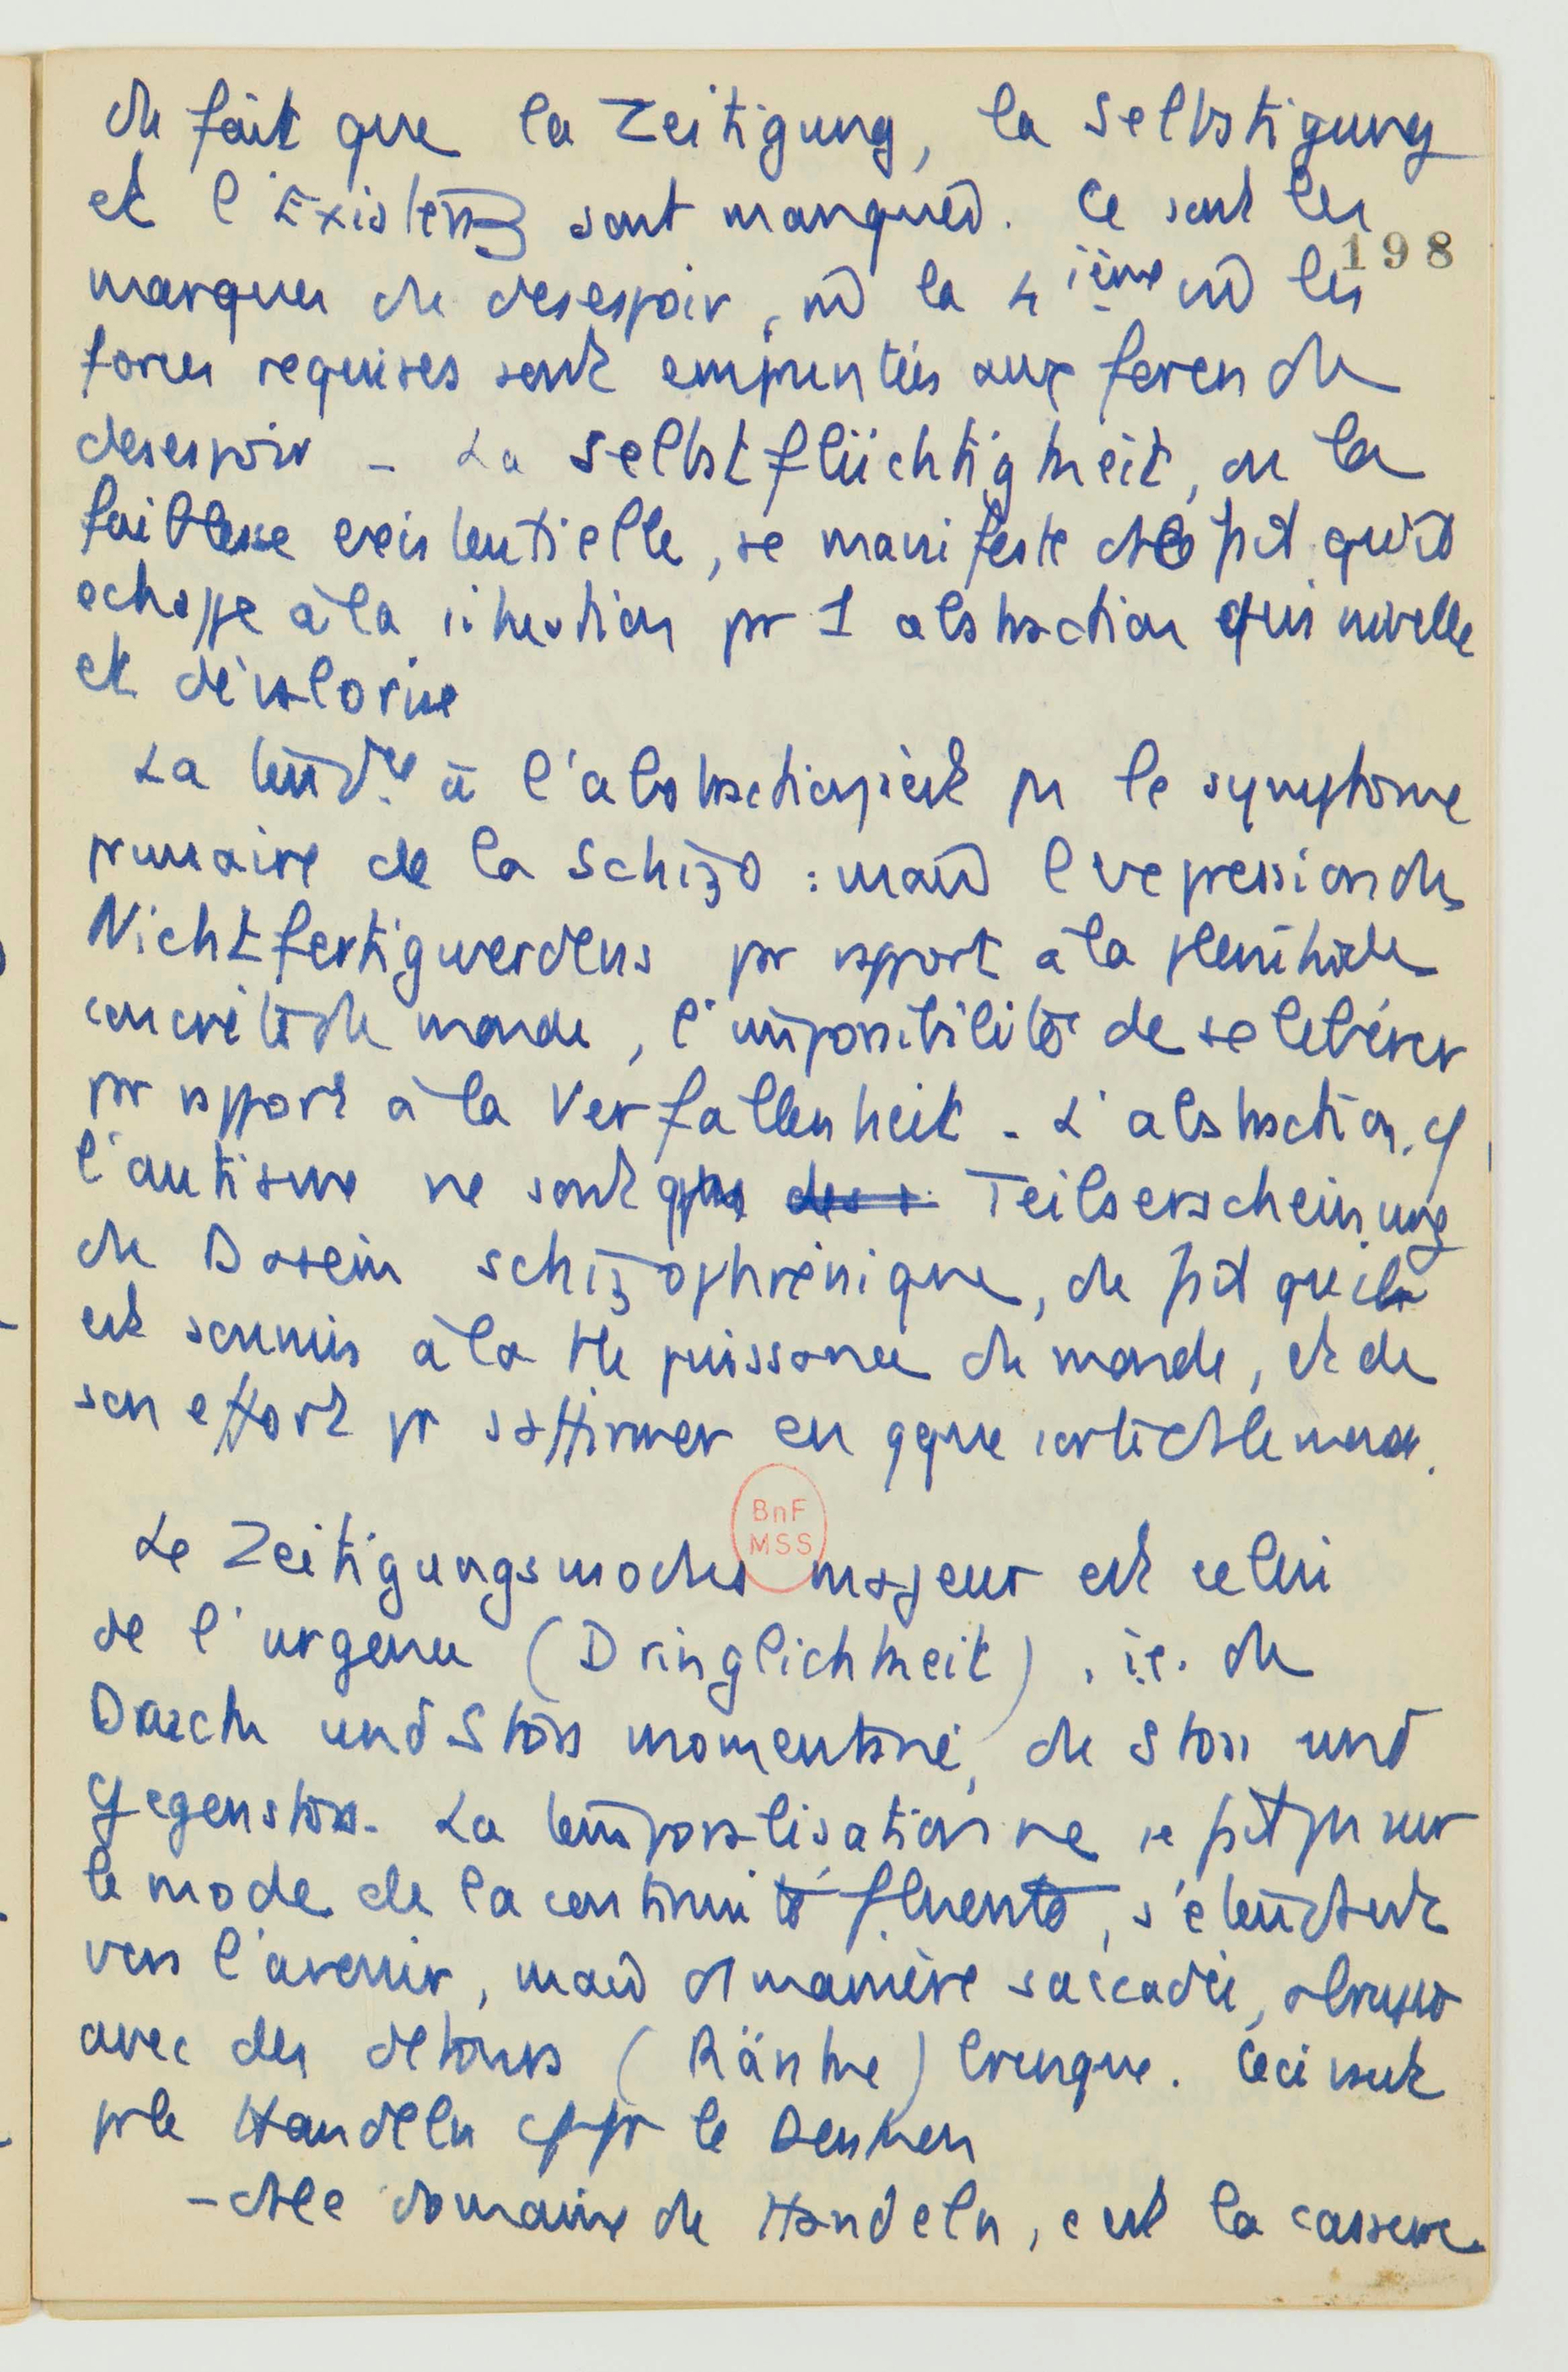 du fait que la Zeitigung, la Selbstigung
et l'Existenz sont manqués. Ce sont les
198
marques du desespoir, où la 4ième où les
forces requises sont empruntées aux forces du
desespoir – La Selbstflüchtigkeit, ou la
faiblesse existentielle, se manifeste ds le fait qu'il
echappe à la situation par 1 abstraction qui nivelle
et dévalorise
La tendce à l'abstraction n'est pas le symptôme
primaire de la Schizo : mais l'expression du
Nichtfertigwerdens par rapport à la plénitude
concrète du monde, l'impossibilité de se libérer
par rapport à la Verfallenheit – L'abstraction, et
l'autisme ne sont que Teilserscheinung
du Dasein schizophrénique, du fait qu'il
est soumis à la tte puissance du monde, et de
son effort pr s'affirmer en qque sorte ds le monde.
BnF
MSS
Le Zeitigungsmodus majeur est celui
de l'urgence (Dringlichkeit), i.e. du
Druck und Stoss momentané, du Stoss und
Gegenstoss. La temporalisation ne se fait pas sur
le mode de la continuité fluente, s'étendant
vers l'avenir, mais d'1 manière saccadée, abrupte
avec des détours (Ränke) brusque. Ceci vaut
pr le Handeln et pr le Denken
– ds le domaine du Handeln, c'est la